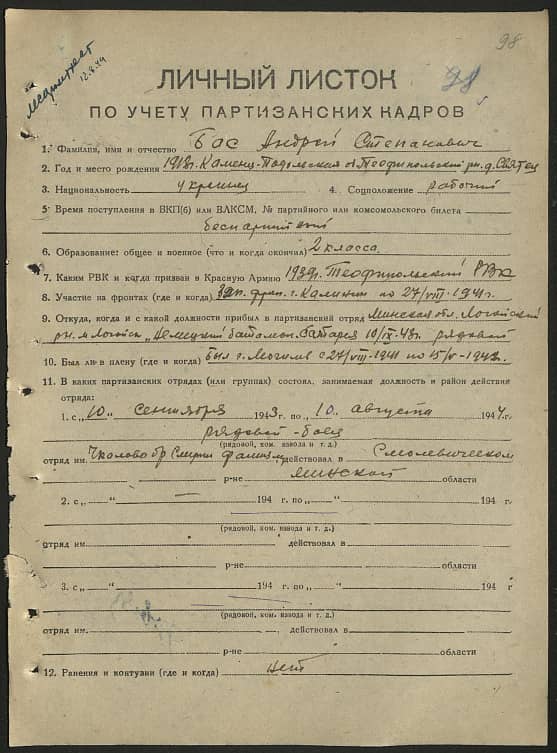 98
12.8.44
98
ЛИЧНЫЙ ЛИСТОК
ПО УЧЕТУ ПАРТИЗАНСКИХ КАДРОВ
1. Фамилия, имя и отчество Бас Андрей Степанович
2. Год и место рождения 1913г. Каменц-Подольская об. Теофипольский рн. д. Святец
3. Национальность украинец 4. Соцположение рабочий
5 Время поступления в ВКП(б) или ВЛКСМ, № партийного или комсомольского билета
беспартийный
6. Образование: общее и военное (что и когда окончил) 2 класса
7. Каким РВК и когда призван в Красную Армию 1939г. Теофипольский РВК
8. Участие на фронтах (где и когда) Зап. фрон. г. Калинин по 27/VIII-1941г.
9. Откуда, когда и с какой должности прибыл в партизанский отряд Минская обл. Логойский
рн. м. Логойск „Немецкий" батальон. 10/IX-43г. рядовой
10. Был ли в плену (где и когда) Был г. Могилев с 27/VIII-1941 по 15/V-1943г.
11. В каких партизанских отрядах (или группах) состоял, занимаемая должность и район действия
отряда:
1. с „10" сентября 1943 г. по „10„ августа 1944г.
рядовой-боец
(рядовой, ком. взвода и т. д.)
отряд им. Чкалово бр Смерть фашизму действовал в Смолевическом
р-не Минской области
2. с „—“ — 194 г. по „—“ 194 г.
(рядовой, ком. взвода и т. д.)
отряд им. действовал в
р-не области
3. с „—“ 194 г. по „—“ 194 г
(рядовой, ком. взвода и т. д.)
отряд им. действовал в
р-не области
12. Ранения и контузии (где и когда) нет